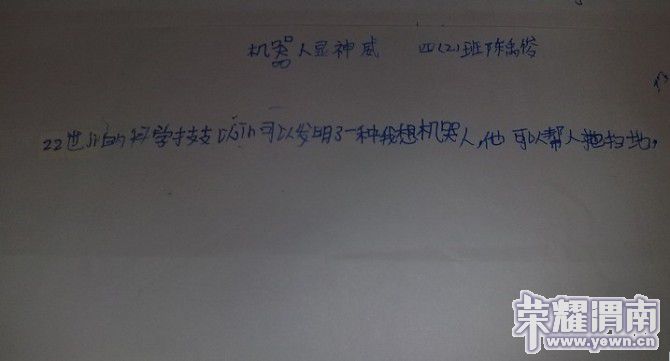 机器人显神威 四(2)班陈禹俊
22世纪的科学技支 可以发明了一种我想机器人,他可以帮人拖扫地,
荣耀渭南
www.yewn.cn